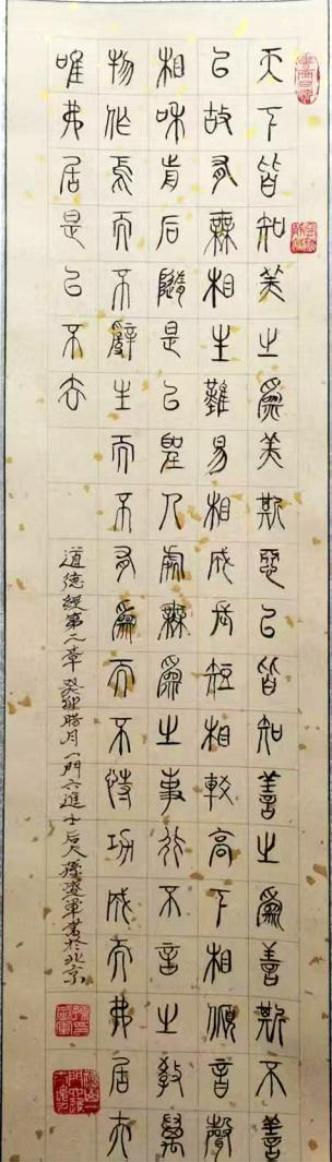 天下皆知美之爲美斯惡已皆知善之爲善斯不善
已故有無相生難易相成長短相較高下相傾音聲
相和前后隨是以聖人處無爲之事行不言之教萬
物作焉而不辭生而不有爲而不恃功成而弗居夫
唯弗居是以不去
道德經第二章 癸卯腊月一門六進士后人軍書於北京